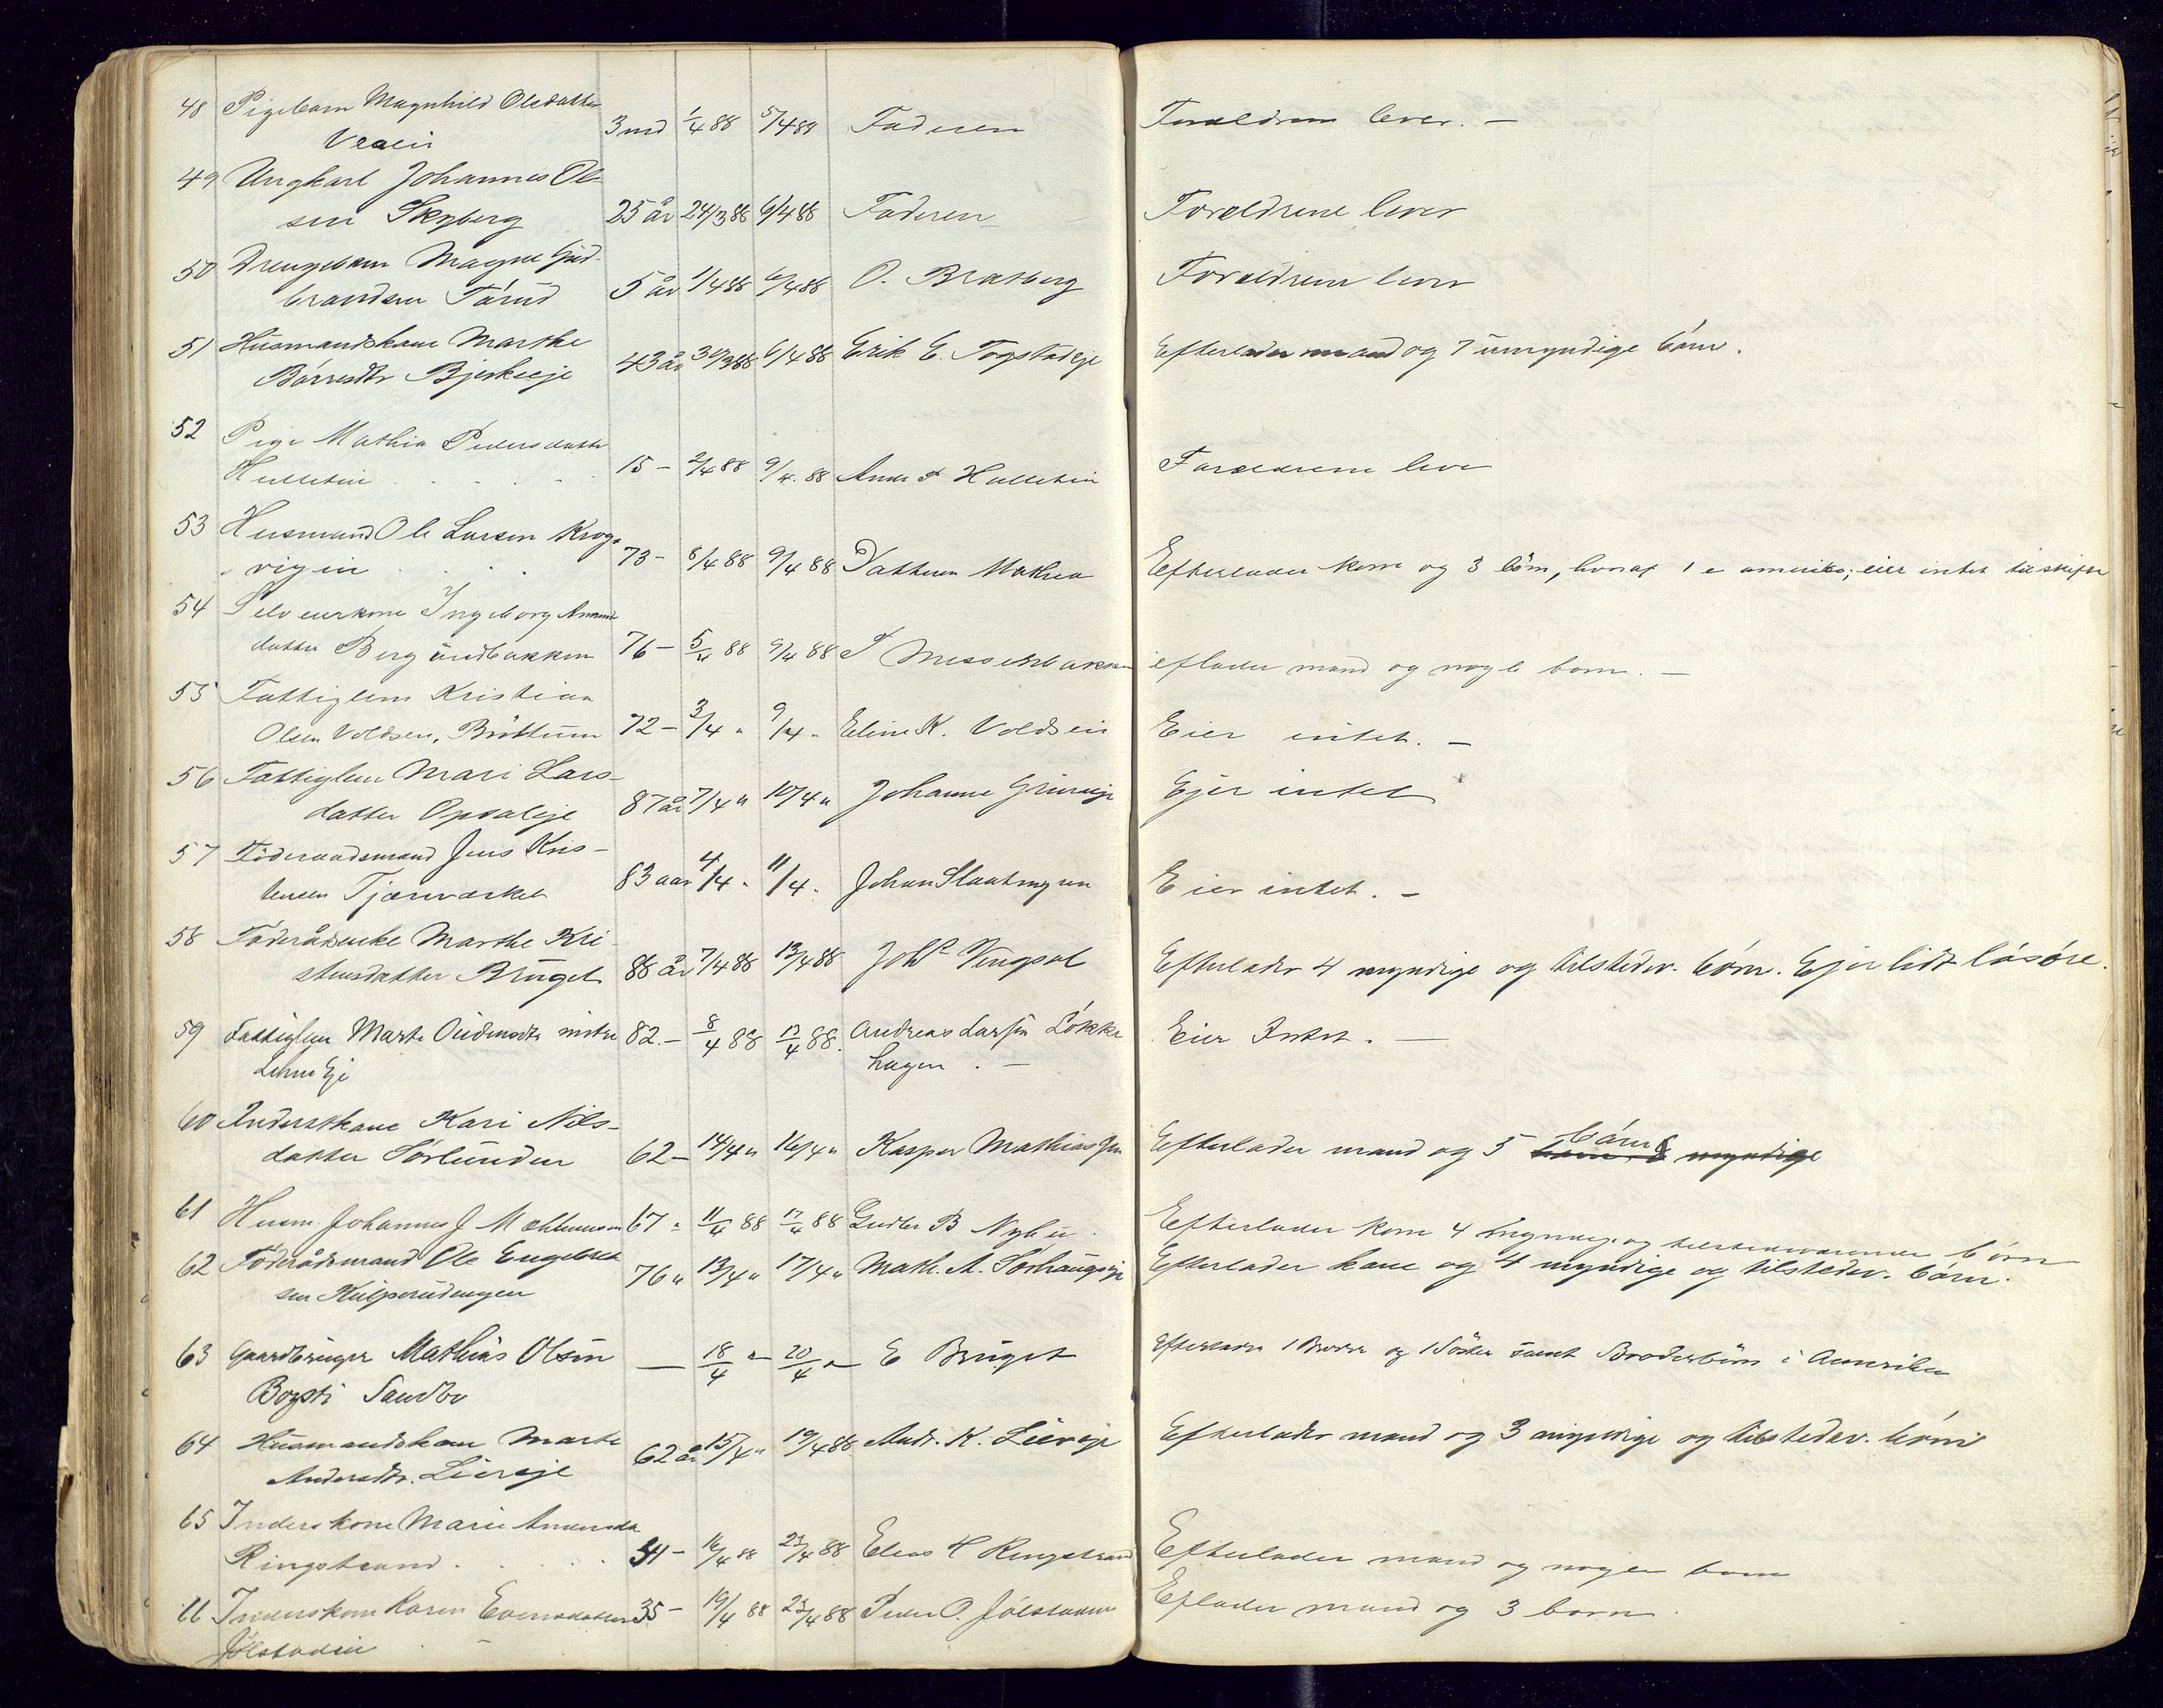 48 Pigebarn Magnhild Olsdatter
3 md 1/4 88 5/4 88 Faderen Forældrene lever. –
49 Ungkarl Johannes Ol-
sen Skyberg 25 år 24/3 88 6/4 88 Faderen Forældrene lever
50 Drengebarn Magne Gud-
brandsen Tårud 5 år 1/4 88 6/4 88 O. Bratberg Forældrene lever
51 Husmandskone Marthe
Børresdtr Bjerkeeje 43 år 30/3 88 6/4 88 Erik E. Fogstadeje Efterlader mand og 7 umyndige børn.
52 Pige Mathia Pedersdatter
Hulletin 15 – 2/4 88 9/4. 88 Anders P Hulletin Forældrene leve
53 Husmand Ole Larsen Krog-
vigin 73 – 6/4 88 9/4 88 Datteren Mathea Efterlader kone og 3 børn, hvoraf 1 e amerika; eier intet til skifte
54 Selveierkone Ingeborg
datter Berg 76 – 5/4 88 9/4 88 eflader mand og nogle born. –
55 Fattiglem Kristian
Olsen Voldsen, Brøttum 72 – 3/4 " 9/4 " Eline K. Voldsen Eier intet. –
56 Fattiglem Mari Lars-
datter Opsaleje 87 år 7/4 " 10/4 " Johanne Ejer intet
57 Føderaadsmand Jens Kris-
tensen Tjærnværket 83 aar 4/4 " 11/4 " Johan Slaatmyren Eier intet. –
58 Føderådsenke Marthe Kri-
stensdatter Bruget 88 år 7/4 88 13/4 88 Johs Vingsal Efterlader 4 myndige og tilstedev. børn. Ejer lidt løsøre.
59 Fattiglem Marte Oudensdtr
82. – 8/4 88 13/4 88. Andreas Larsen Løkke Eier Intet. –
hagen. –
60 Inderstkone Kari Nils-
datter Sørlunden 62 – 14/4 " 16/4 " Kasper Mathiassen Efterlader mand og 5 børn
61 Husm. Johannes J Mæhlumsen 67 " 11/4 88 17/4 88 Gudbr B Nyhu. Efterlader kone 4 myndig. og tilstedeværende børn
62 Føderådsmand Ole Engebret-
sen Kulpsrudengen 76 " 13/4 " 17/4 " Math. A. Sørhaugseje Efterlader kone og 4 myndige og tilstedev. børn.
63 Gaardbruger Mathias Olsen
Bogsti Sandbo — 18/4 " 20/4 " E Bruget Efterlader 1 Broder og 1 Søster samt Broderbørn i Amerika
64 Husmandskone Marte
Andersdtr. Liereje 62 år 15/4 " 19/4 88 Andr. K. Liereje Efterlader mand og 3 myndige og tilstedev. børn
65 Inderskone Marie Andersda
Ringstrand 54 – 16/4 88 23/4 88 Elias H Ringstrand Efterlader mand og nogen born
66 Inderskone Karen Evensdatter 35 – 19/4 88 23/4 88 Peder O. Jølstaden Eflader mand og 3 born.
Jølstaden –